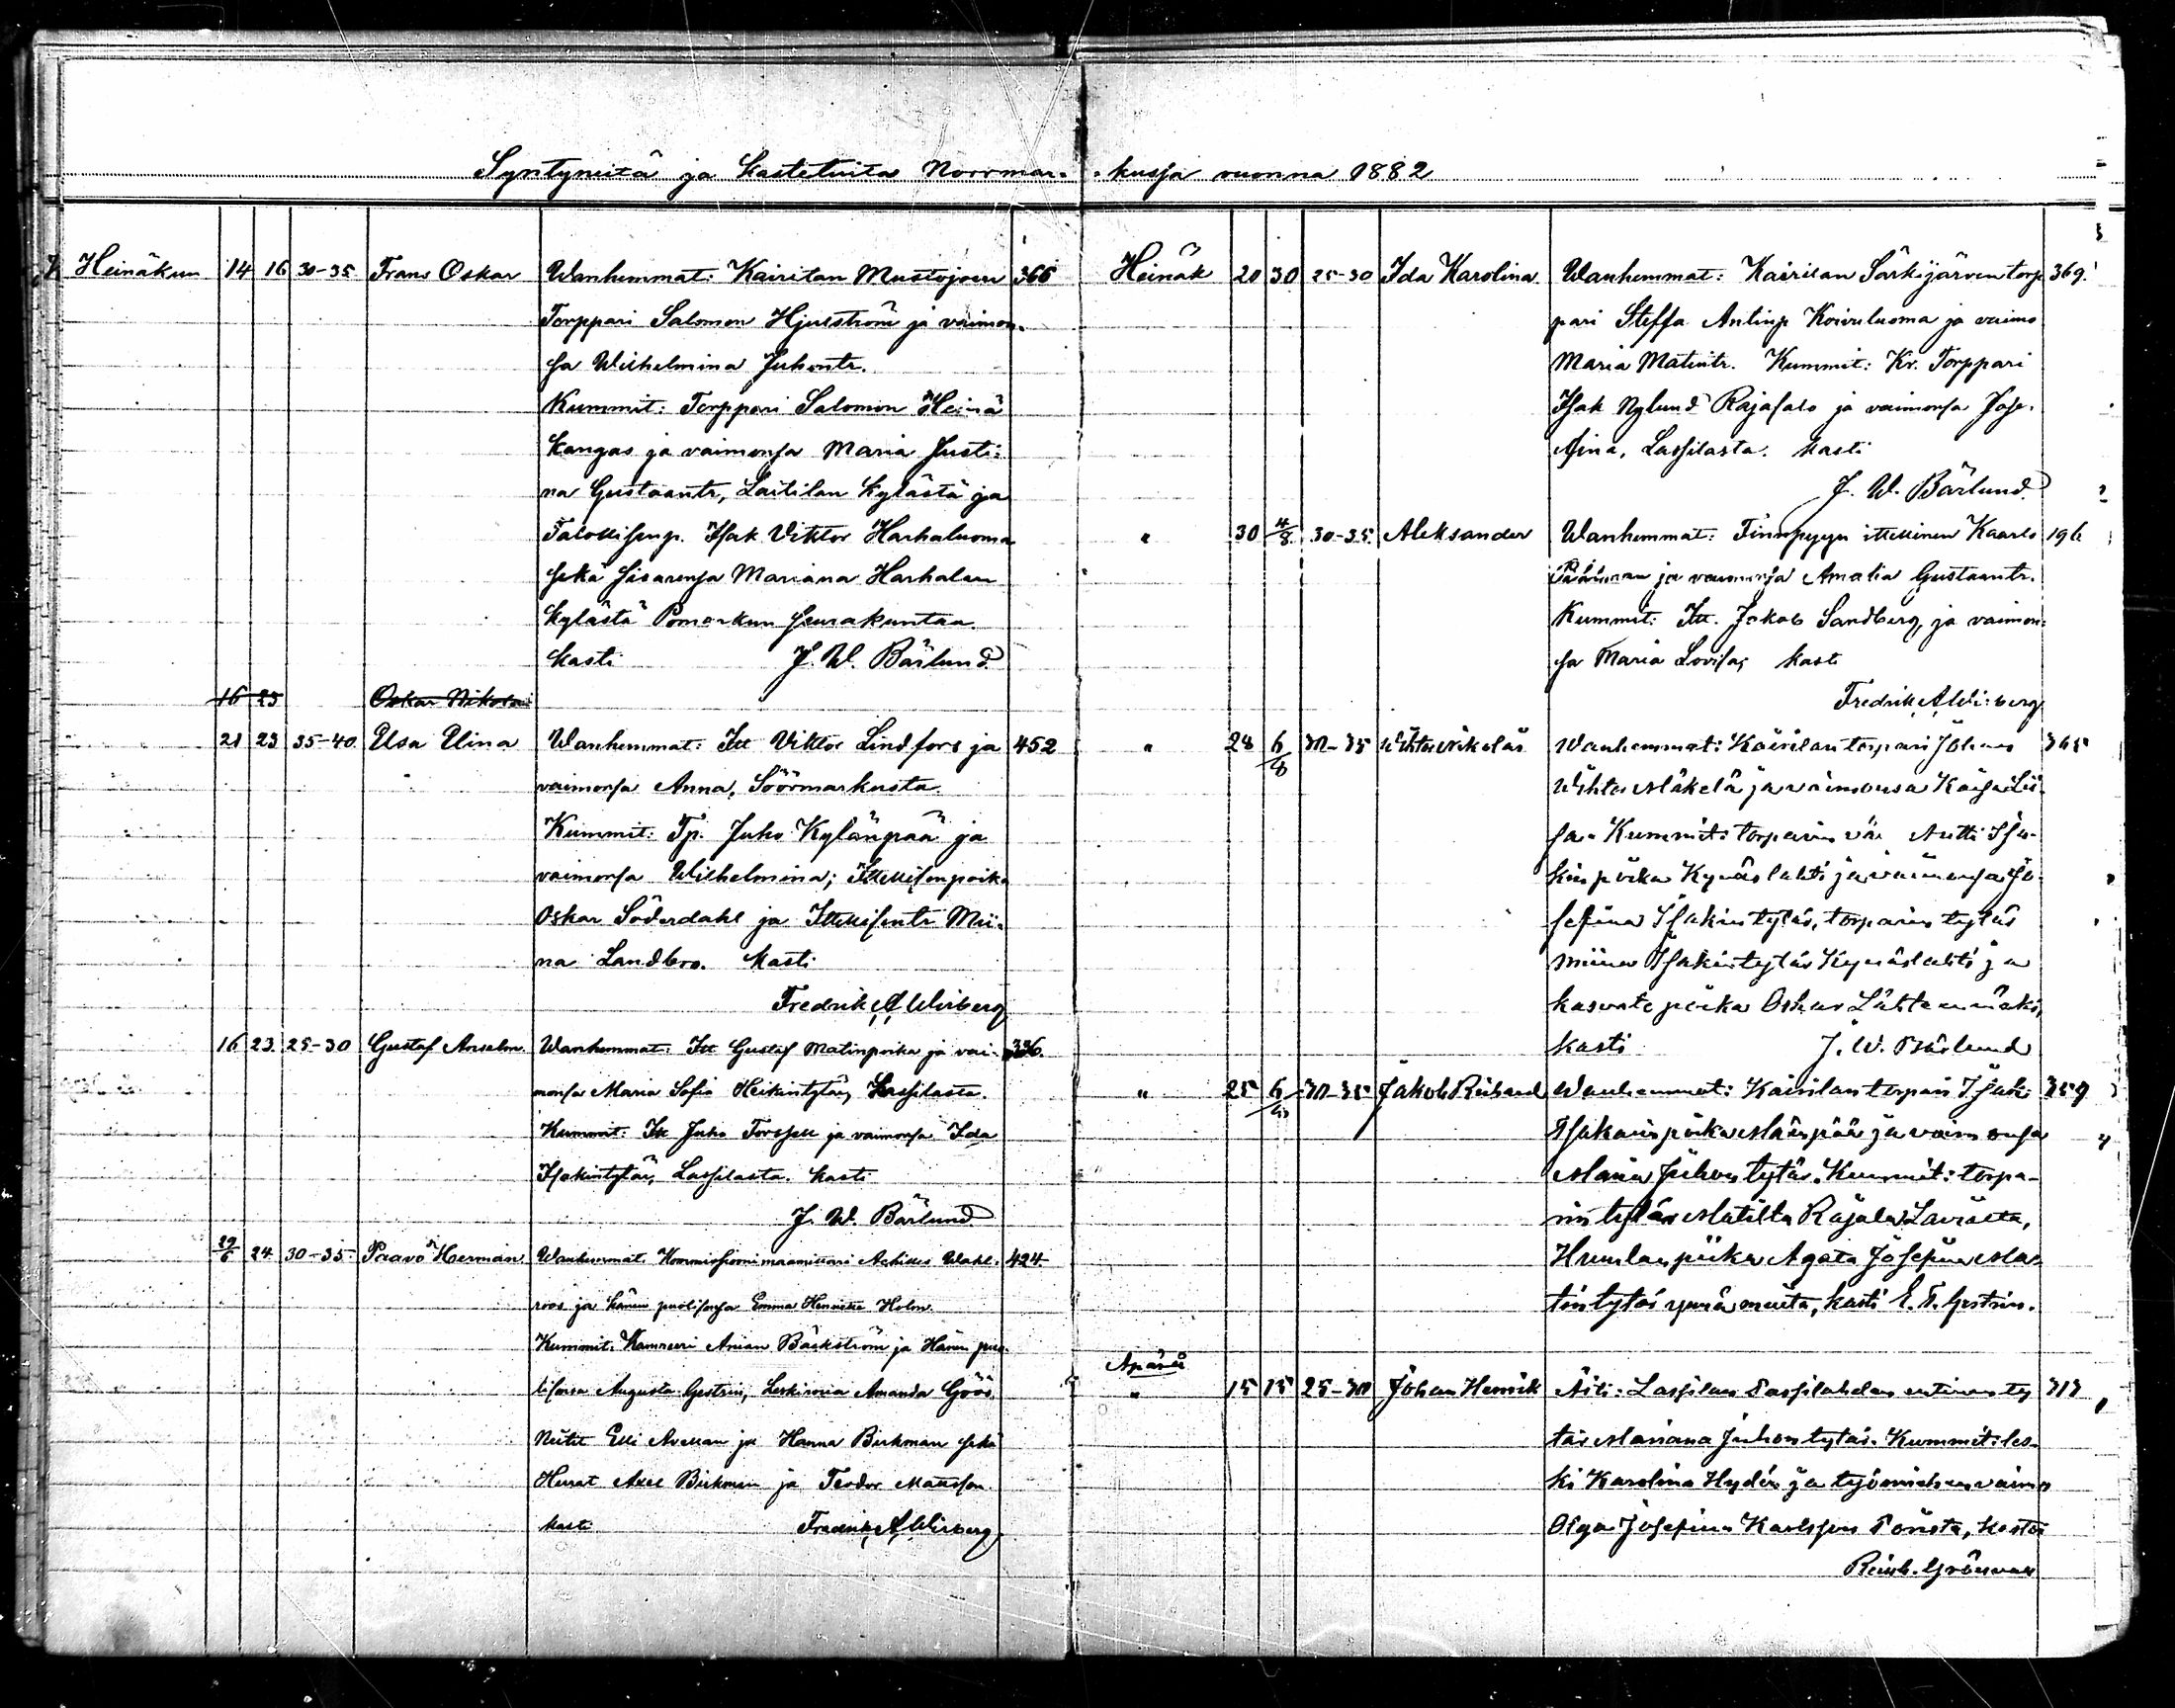 Syntyneitä ja Kastetuita Norrmar-kussa vuonna 1882
Heinäkuu 14 16 30-35 Frans Oskar Wanhemmat: Kairilan Mustojoen 366
Torppari Salomon Hjulström ja vaimon-
sa Wilhelmina Juhontr.
Kummit: Torppari Salomon Heinä
kangas ja vaimonsa Maria Justi-
na Gustaantr, Laitilan Kylästä ja
Talollisenp. Isak Viktor Harhaluoma
sekä sisarensa Mariana Harhalan
kylästä Pomarkun seurakuntaa.
kasti J. W. Bärlund
16 23 Oskar Nikolai
21 23 35-40 Elsa Elina Wanhemmat: Itt Viktor Lindfors ja 452
vaimonsa Anna, Söörmarkusta.
Kummit: Tp. Juho Kylänpää ja
vaimonsa Wilhelmina; Ittellisenpoika
Oskar Söderdahl ja Ittellisentr Mii-
na Landbro. Kasti
Fredrik A Wirberg
16 23 25-30 Gustaf Anselm Wanhemmat: Itt Gustaf Matinpoika ja vai- 336.
monsa Maria Sofia Heikintytär, Lassilasta.
Kummit: Itt Juho Forssell ja vaimonsa Ida
Isakintytär, Lassilasta. Kasti
J. W. Bärlund
29/6 24 30-35 Paavo Herman Wanhemmat. Kommissioonimaamittari Achilles Wahl- 424
roos ja hänen puolisonsa Emma Henriette Holm
Kummit: Kamreeri Bäckström ja Hänen puo-
lisonsa Augusta Gestrin, Leskirouva Amanda Göös.
Neitit Elli Avellan ja Hanna Birkman sekä
Herrat Axel Birkman ja Teodor Mattsson
kasti Fredrik A Wirberg
Heinäk 20 30 25-30 Ida Karolina Wanhemmat: Kairilan Särkijärven torp 369.
pari Steffa Antinp Koivuluoma ja vaimo
Maria Matintr. Kummit: Kr. Torppari
Isak Nylund Rajasalo ja vaimonsa Jose-
fina, Lassilasta. kasti
J. W. Bärlund
" 30 4/8 30-35 Aleksander Wanhemmat: Finnpyyn ittellinen Kaarlo 196
ja vaimonsa Amalia Gustaantr.
Kummit: Itt. Jakob Sandberg, ja vaimon-
sa Maria Lovisa; kasti
Fredrik A Wirberg
" 28 6/8 30-35 Wihtor Nikolai Wanhemmat: Kairilan torpari Johan 365
Wihtor Mäkelä ja vaimonsa Kaisa Lii-
sa. Kummit: torparin väv Antti Isa-
kinpoika Kynäslahti ja vaimonsa Jo-
sefina Isakintytär, torparin tytär
Miina Isakintytär Kynäslahti ja
kasvatepoika Oskar Lähteenmäki,
kasti J. W. Bärlund
" 25 6/8 30-35 Jakob Richard Wanhemmat: Kairilan torpari Isak 359
Isakinpoika Mäenpää ja vaimonsa
Maria Juhontytär. Kummit: torpa-
rintytär Matilta Rajala Laviasta,
piika Agata Josefina Ma-
tintytär kasti E. T. Gestrin.
Äpäriä
" 15 15 25-30 Johan Henrik Äiti: Lassilan Passilahden entinen ty 313
tär Mariana Juhontytär. Kummit: les-
ki Karolina Hydén ja työmiehen vaimo
Olga Josefina Karlsson Porista, kasti
Reinh. Grönvall